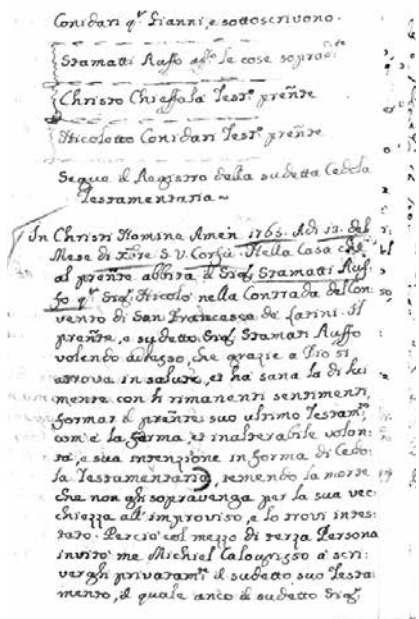 Conidari q.m Gianni, e sottoscrivono.
Stamatti Ruffo aff.o le cose sopra
Christo Chieffala Test.o prẽnte
Nicoletto Conidari Test.o prẽnte
Segue il Registro della sudetta Cedola
Testamentaria ~
In Christi Nomine Amen 1765. Adi 13. del
Mese di Xbre S. V. Corfù. Nella Casa che
al prẽnte abbita il Sig.r Stamatti Ruf:
fo q.m Sig.r Nicolò nella Contrada del Con:
vento di San Francesco de Latini. Il
prẽnte, e sudetto Sig.r Stamati Ruffo
volendo adesso, che grazie a Dio si
attrova in salute, et ha sana la di lui
mente con li rimanenti sentimenti,
formar il prẽnte suo ultimo Testam.to
com'è la ferma, et inalterabile volon:
tà, e sua intenzione in forma di Cedo:
la Testamentaria, temendo la morte
che non gli sopravenga per la sua vec:
chiezza all'improviso, e lo trovi intes:
tato. Perciò col mezzo di terza Persona
invitò me Michiel Calogrisso a scri:
vergli privatam.te il sudetto suo Testa:
mento, il quale anco il sudetto Sig.r